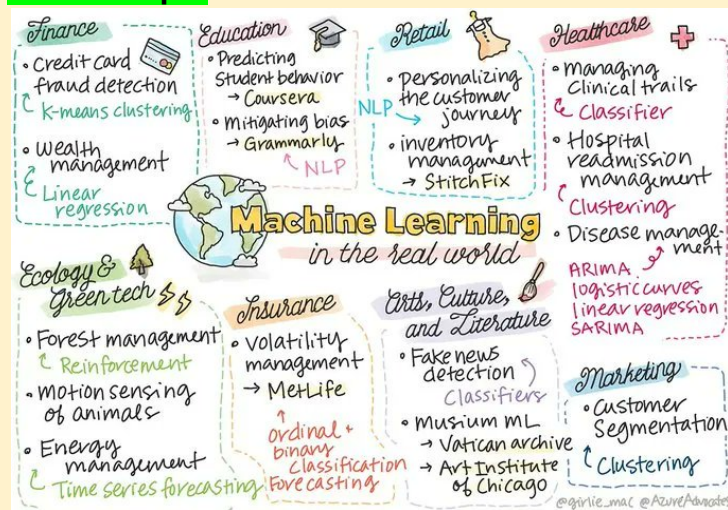 Finance
• Credit card
fraud detection
K-means clustering
• Wealth
management
Linear
regression
Education
• Predicting
Student behavior
→ Coursera
• Mitigating bias
→ Grammarly
NLP
Retail
• personalizing
the customer
journey
NLP
• inventory
managment
→ StitchFix
Healthcare
• managing
Clinical trails
Classifier
• Hospital
readmission
management
Clustering
• Disease manage-
ment
ARIMA
logistic curves
linear regression
SARIMA
Machine Learning
in the real world
Ecology &
Green tech
• Forest management
Reinforcement
• motion sensing
of animals
• Energy
management
Time series forecasting
Insurance
• Volatility
management
→ MetLife
ordinal +
binary
Classification
Forecasting
Arts, Culture,
and Literature
• Fake news
detection
Classifiers
• Musium ML
→ Vatican archive
→ Art Institute
of Chicago
Marketing
• Customer
Segmentation
Clustering
@girlie_mac @AzureAdvocates